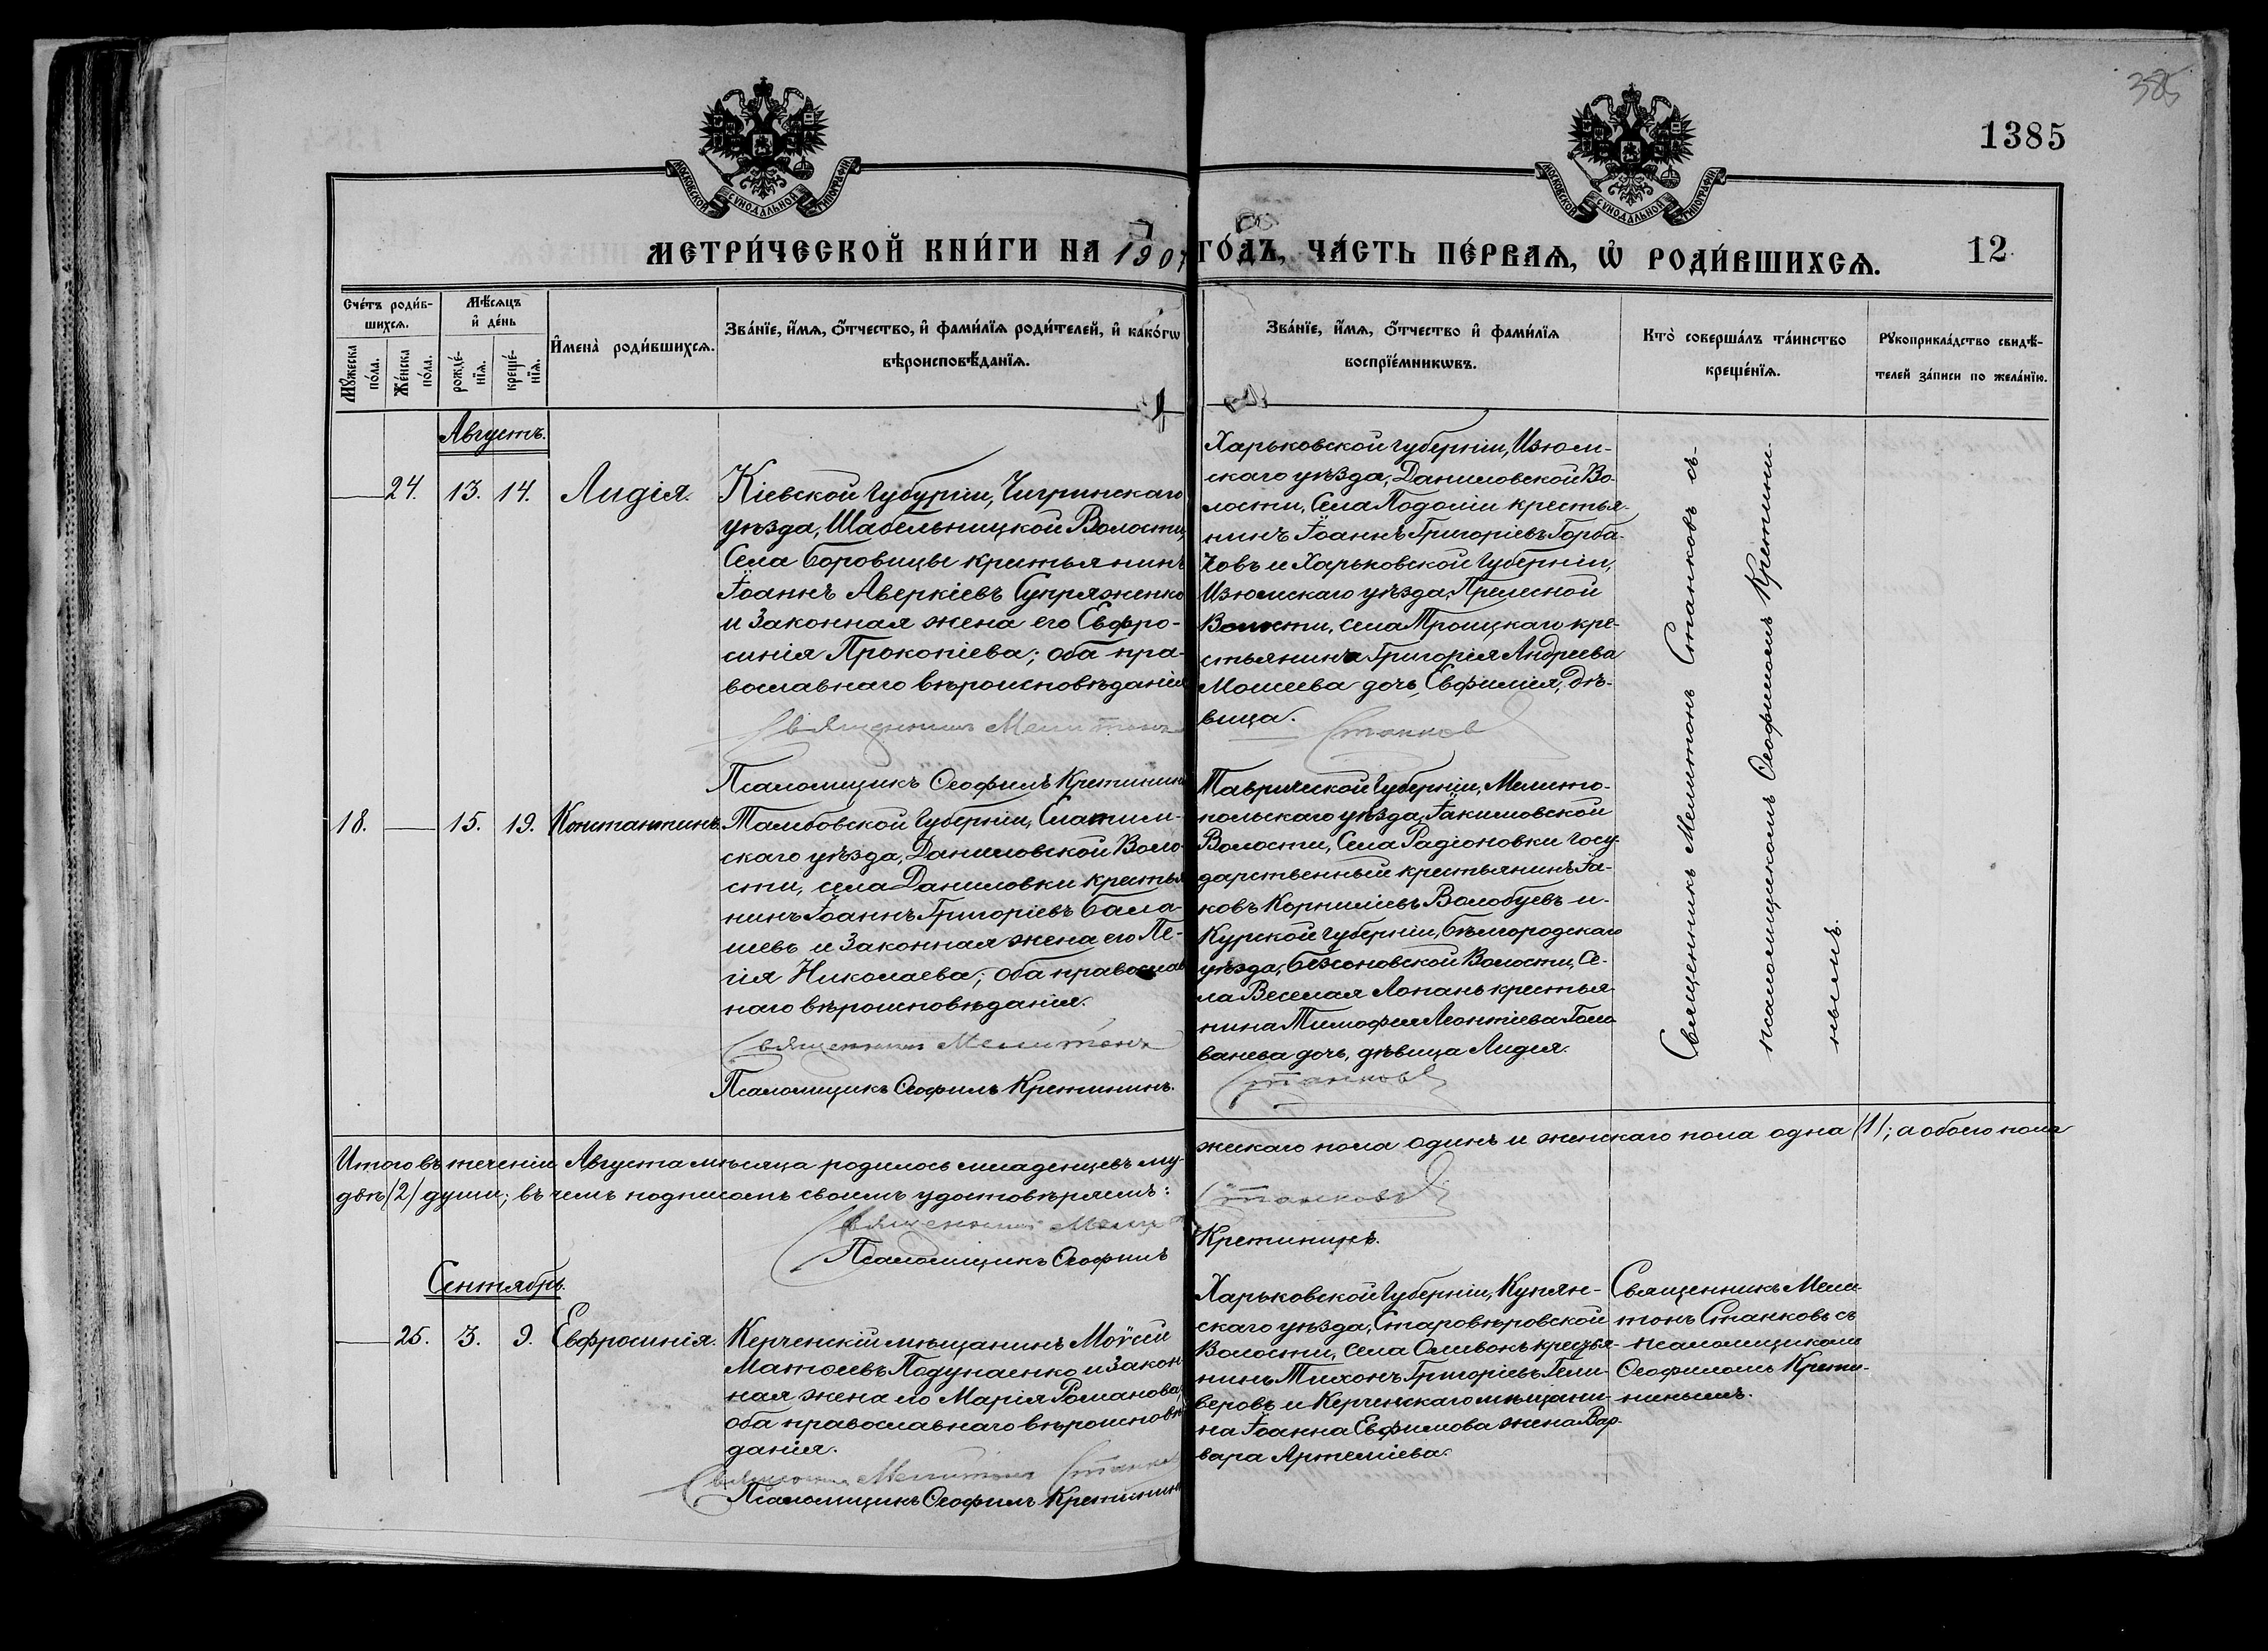 385
1385
МОСКОВСКОЙ СѴНОДАЛЬНОЙ ТИПОГРАФІИ
МОСКОВСКОЙ СѴНОДАЛЬНОЙ ТИПОГРАФІИ
МЕТРИ́ЧЕСКОЙ КНИ́ГИ НА 1907 ГО́ДЪ, ЧА́СТЬ ПЕ́РВАѦ, Ѡ҆ РОДИ́ВШИХСѦ.
12
Сче́тъ роди́в-
шихсѧ.
Мꙋ́жеска по́ла.
Же́нска по́ла.
Мѣ́сѧцъ
и҆ де́нь
рожде́-
нїѧ.
креще́-
нїѧ.
И҆мена̀ роди́вшихсѧ.
Зва́нїе, и҆́мѧ, ѻ҆́тчество, и҆ фами́лїѧ роди́телей, и҆ како́гѡ
вѣроисповѣ́данїѧ.
Зва́нїе, и҆́мѧ, ѻ҆́тчество и҆ фами́лїѧ
воспрїе́мникѡвъ.
Кто̀ соверша́лъ та́инство
креще́нїѧ.
Рꙋкоприкла́дство свидѣ́-
телей за́писи по жела́нїю.
Августъ.
24. 13. 14. Лидія.
Кіевской Губурніи, Чигринскаго
уѣзда, Шабельницкой Волости,
Села Боровицы критьянинъ
Іоаннъ Аверкіевъ Супряженко
и Законная жена его Евфро-
синія Прокопіева; оба пра-
вославнаго вѣроисповѣданія
Священникъ Мелитонъ
Псаломщикъ Ѳеофилъ Кретининъ
Харьковской губерніи, Изюм-
скаго уѣзда, Даниловской Во-
лости, Села Подоліи крестья-
нинъ Іоаннъ Григоріевъ Горба-
човъ и Харьковской Губерніи,
Изюмскаго уѣзда, Прелесной
Волости, села Троицкаго кре-
стьянина Григорія Андреева
Моисеева дочь, Евфимія, дѣ-
вица.
Станков
Священникъ Мелитонъ Станковъ съ
псаломщикомъ Ѳеофиломъ Кретини-
нымъ.
18. 15. 19. Константинъ.
Тамбовской Губерніи, Елатим-
скаго уѣзда, Даниловской Воло-
сти, села Даниловки крестья
нинъ Іоаннъ Григоріевъ Бала-
шевъ и Законная жена его Пе-
гія Николаева; оба православ
наго вѣроисповѣданія.
Священникъ Мелитонъ
Псаломщикъ Ѳеофилъ Кретининъ.
Таврической Губерніи, Мелито-
польскаго уѣзда, Іакимовской
Волости, Села Радіоновки Госу-
дарственный крестьянинъ Іа-
ковъ Корниліевъ Волобуевъ и
Курской губерніи, Бѣлгородскаго
уѣзда, Безсоновской Волости, Се-
ла Веселая Лопань крестья-
нина Тимофея Леонтіева Голо
ванева дочь, дѣвица Лидия.
Станковъ
Итого въ теченіи Августа мѣсяца родилось младенцевъ му-
жскаго пола одинъ и женскаго пола одна (1); а обоего пола
двѣ (2) души; въ чемъ подписомъ своимъ удостовѣряемъ:
Станковъ
Псаломщикъ Ѳеофилъ
Кретининъ.
Сентябрь.
25. 3. 9. Евфросинія.
Керченскій мѣщанинъ Моѵсей
Матѳеевъ Подунаенко и Закон-
ная жена его Марія Романова;
оба православнаго вѣроисповѣ
данія.
Священникъ Мелитонъ Станков
Псаломщикъ Ѳеофилъ Кретининъ
Харьковской Губерніи, Купян-
скаго уѣзда, Старовѣровской
Волости, села Оливокъ крестья-
нинъ Тихонъ Григоріевъ Гели-
веровъ и Керченскаго мѣщани-
на Іоанна Евфимова жена Вар-
вара Артеміева.
Священникъ Мели-
тонъ Станковъ съ
псаломщикомъ
Ѳеофиломъ Крети-
нинымъ.